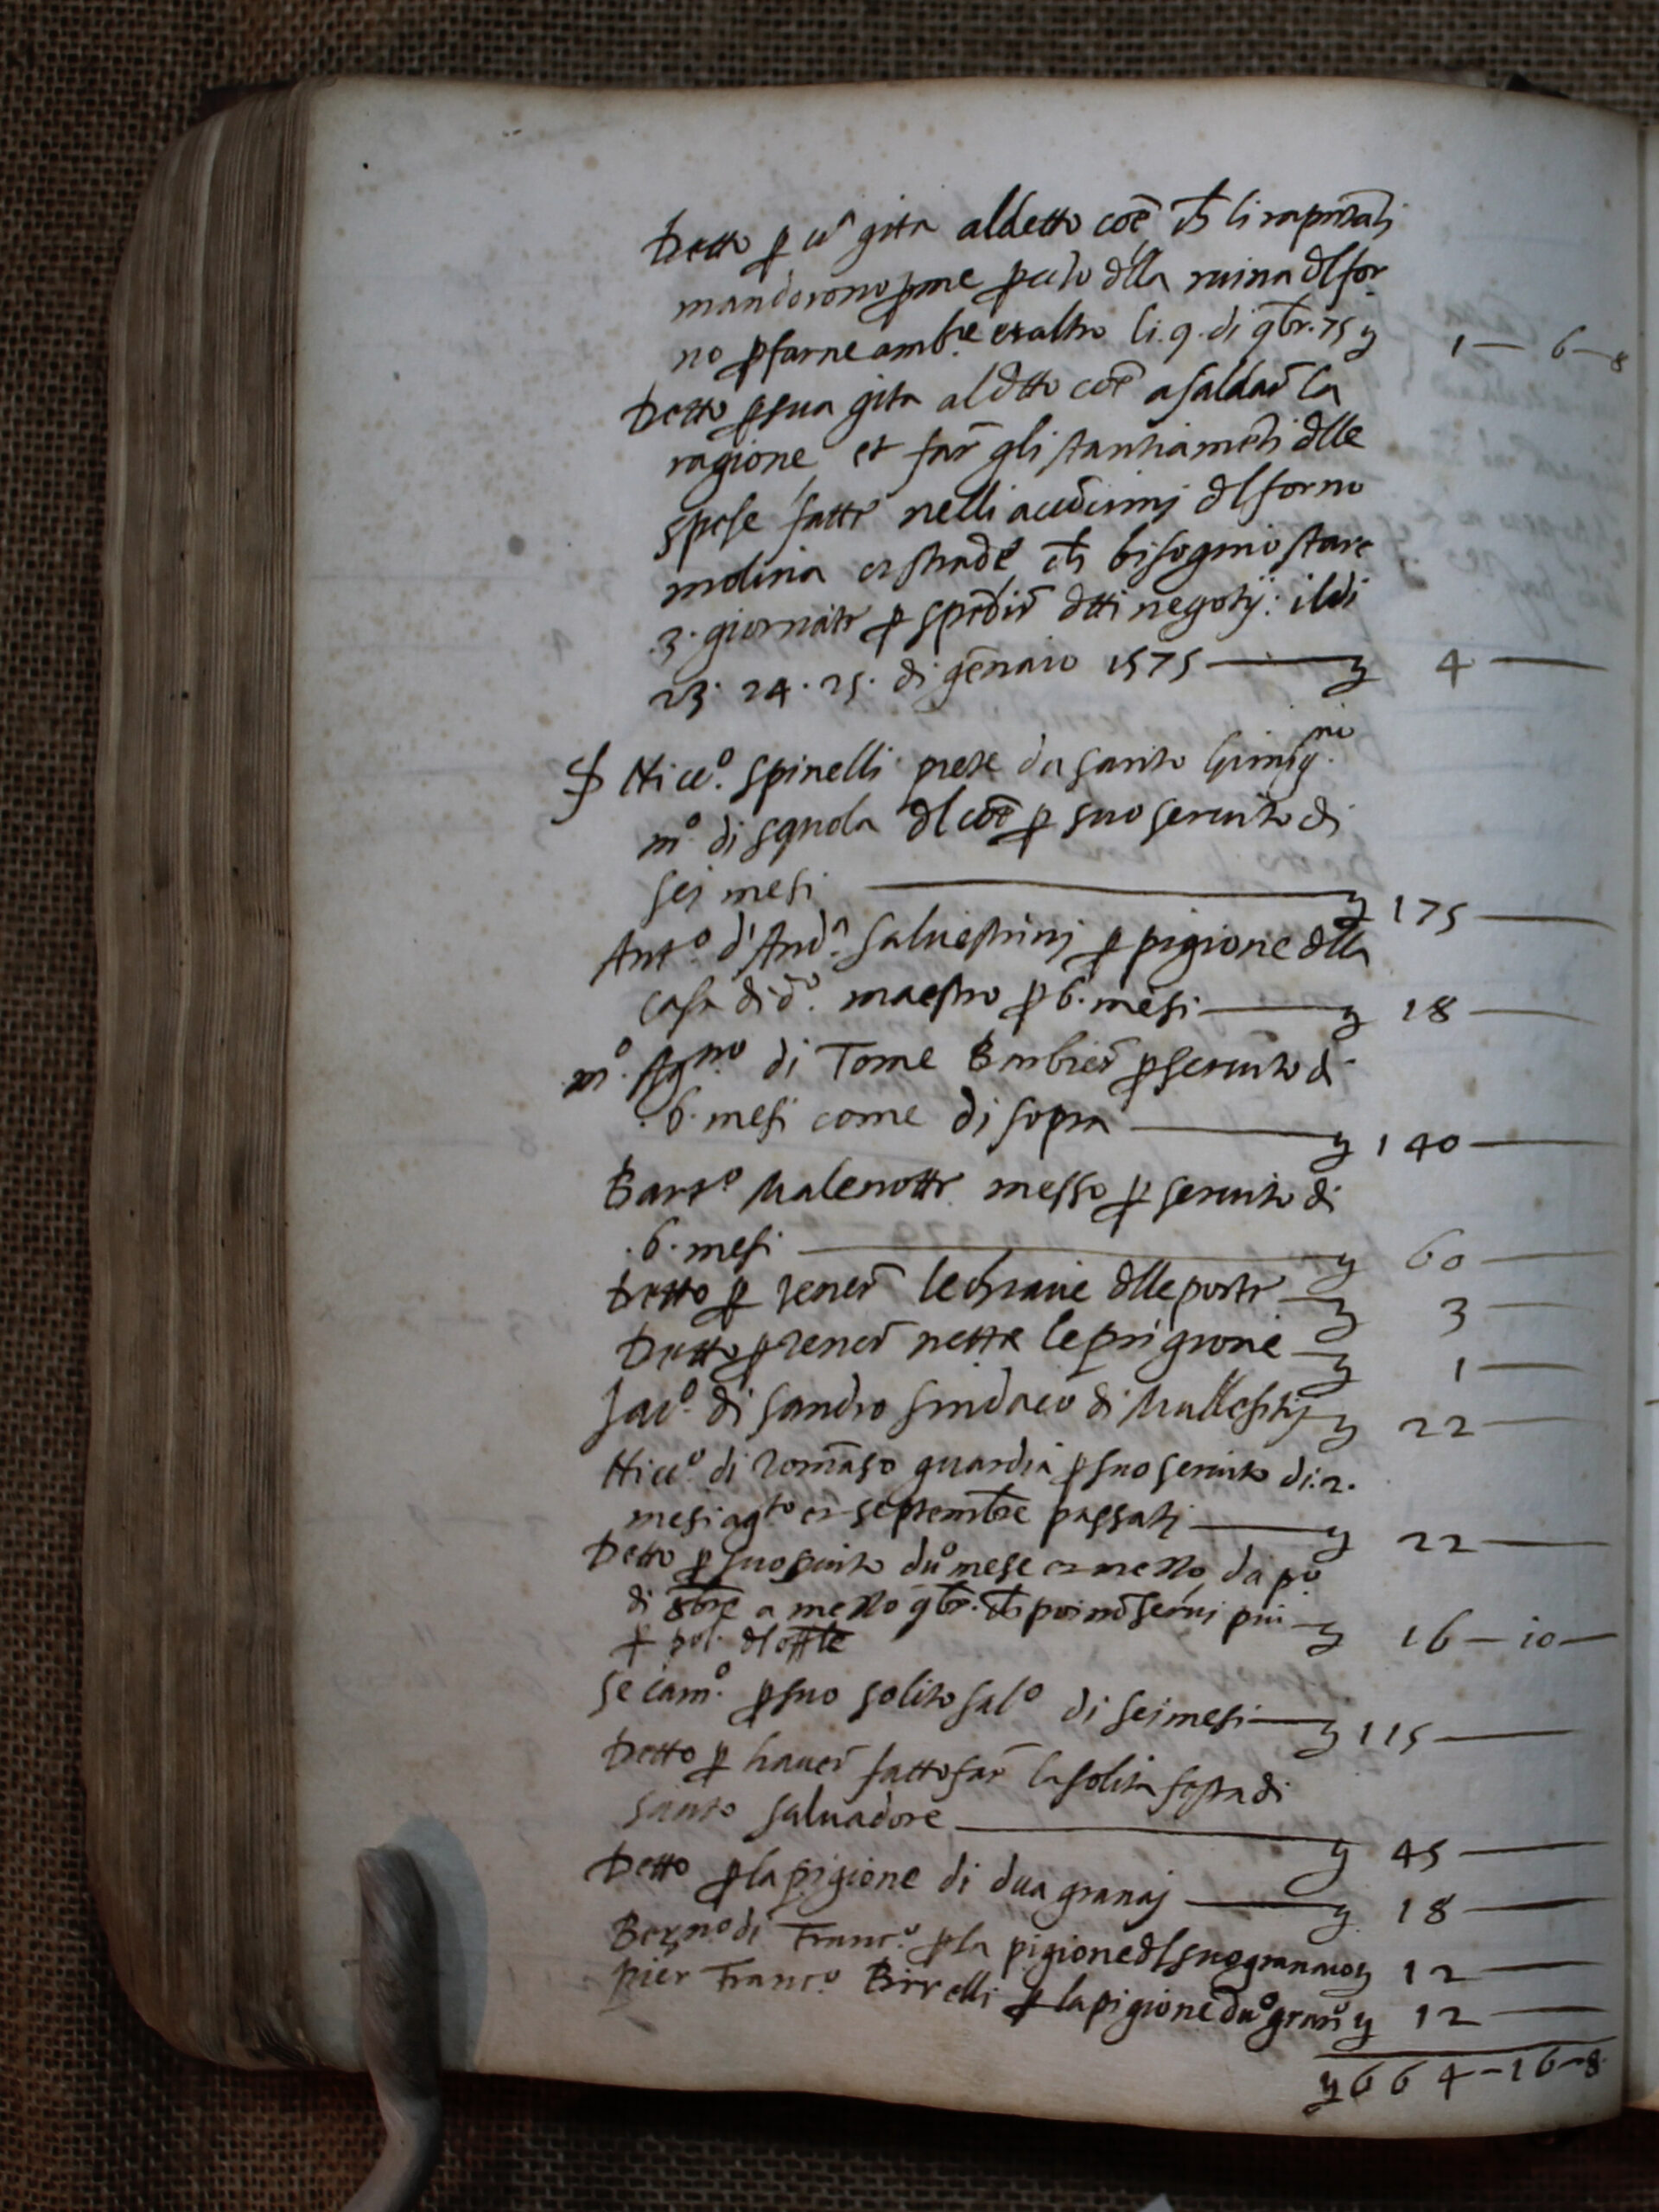 Detto p ua gita al detto coē ch li rapn̄tati
mandorono pme p cuto dlla ruina dl for
no p farne amb.re et altro li .9. di 9br. 75 y 1 — 6 — 8
Detto p sua gita al dtto coē a saldar la
ragione et far gli stantiamēti dlle
spese fatte nelli acconcimj dl forno
molina et strade ch bisognio stare
.3. giornate p spedir dtti negotij: il di
23. 24. 25. di gennaio 1575 — y 4 —
Nicc.o Spinelli prete da santo Gimig.no
m.o di squola dl coē p suo seruito di
sei mesi — y 175 —
Ant.o d'And.a Saluestrinj p pigione dlla
casa di d.o maestro p 6. mesi — y 18 —
m.o Ag.no di Tome Barbier p seruito di
.6. mesi come di sopra — y 140 —
Bart.o Malenotte messo p seruito di
.6. mesi — y 60 —
Detto p tener le chiaue dlle porte — y 3 —
Detto p tener nette le prigione — y 1 —
Jac.o di Sandro sindaco di — y 22 —
Nicc.o di Tomaso guardia p suo seruito di .2.
mesi ag.to et septembre passati — y 22 —
Detto p suo suito du.o mese et mezzo da p.o
di 8bre a mezzo 9br. ch poi nō seruj piu — y 16 — 10 —
p pol. dl
Se cam.o p suo solito sal.o di sei mesi — y 115 —
Detto p hauer fatto far la solita festa di
santo Saluadore — y 45 —
Detto p la pigione di dua granaj — y 18 —
Bern.o di Franc.o p la pigione dl suo granaio y 12 —
Pier Franc.o Birelli p la pigione du.o gran.o y 12 —
y 664 — 16 — 8